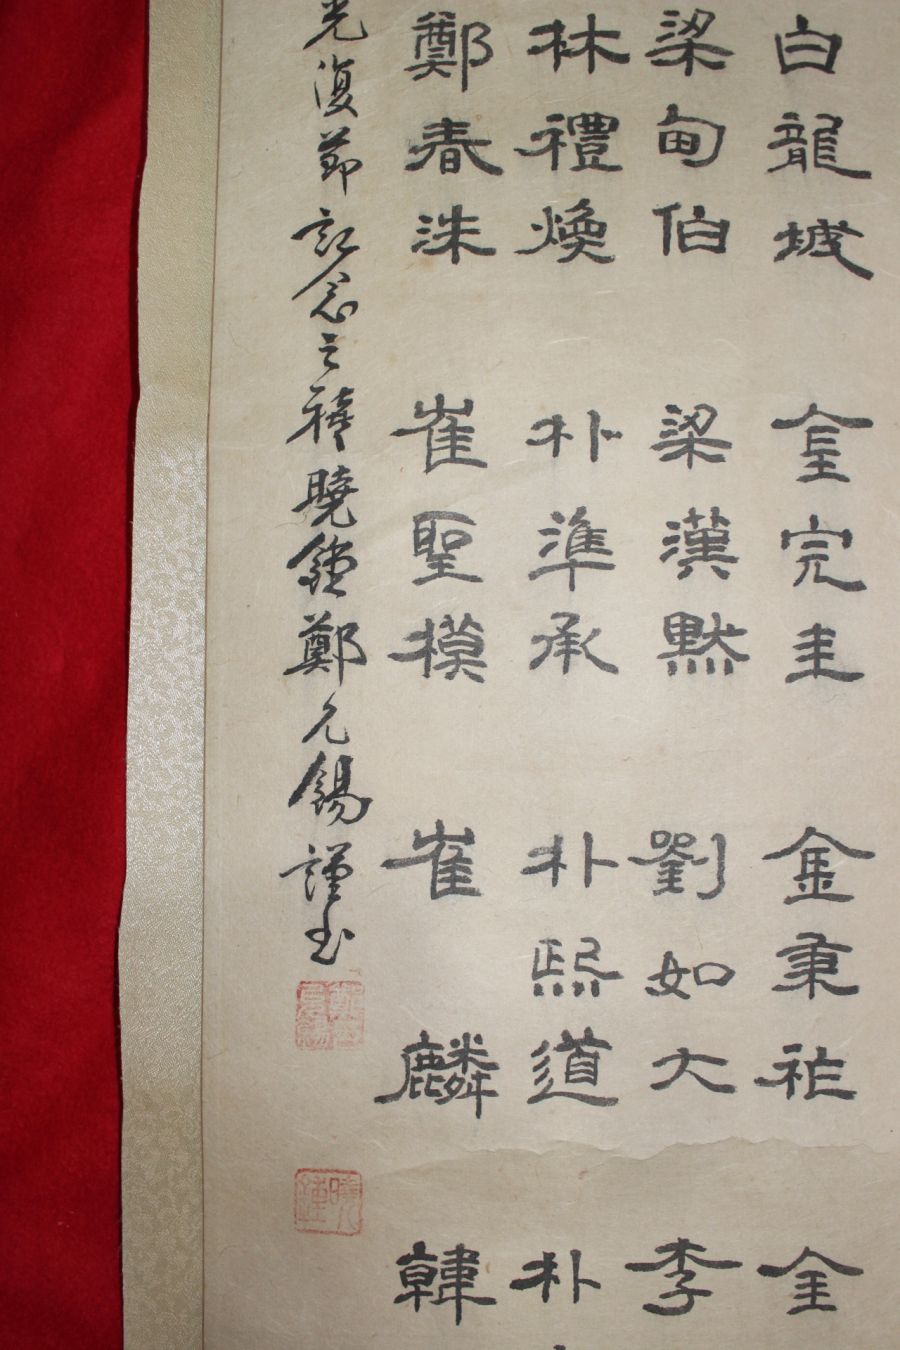 白龍城 金完圭 金秉祚 金
梁甸伯 梁漢默 劉如大 李
林禮煥 朴準承 朴熙道 朴
鄭春洙 崔聖模 崔麟 韓
光復節記念之禧曉鍾鄭允錫謹書
曉鍾